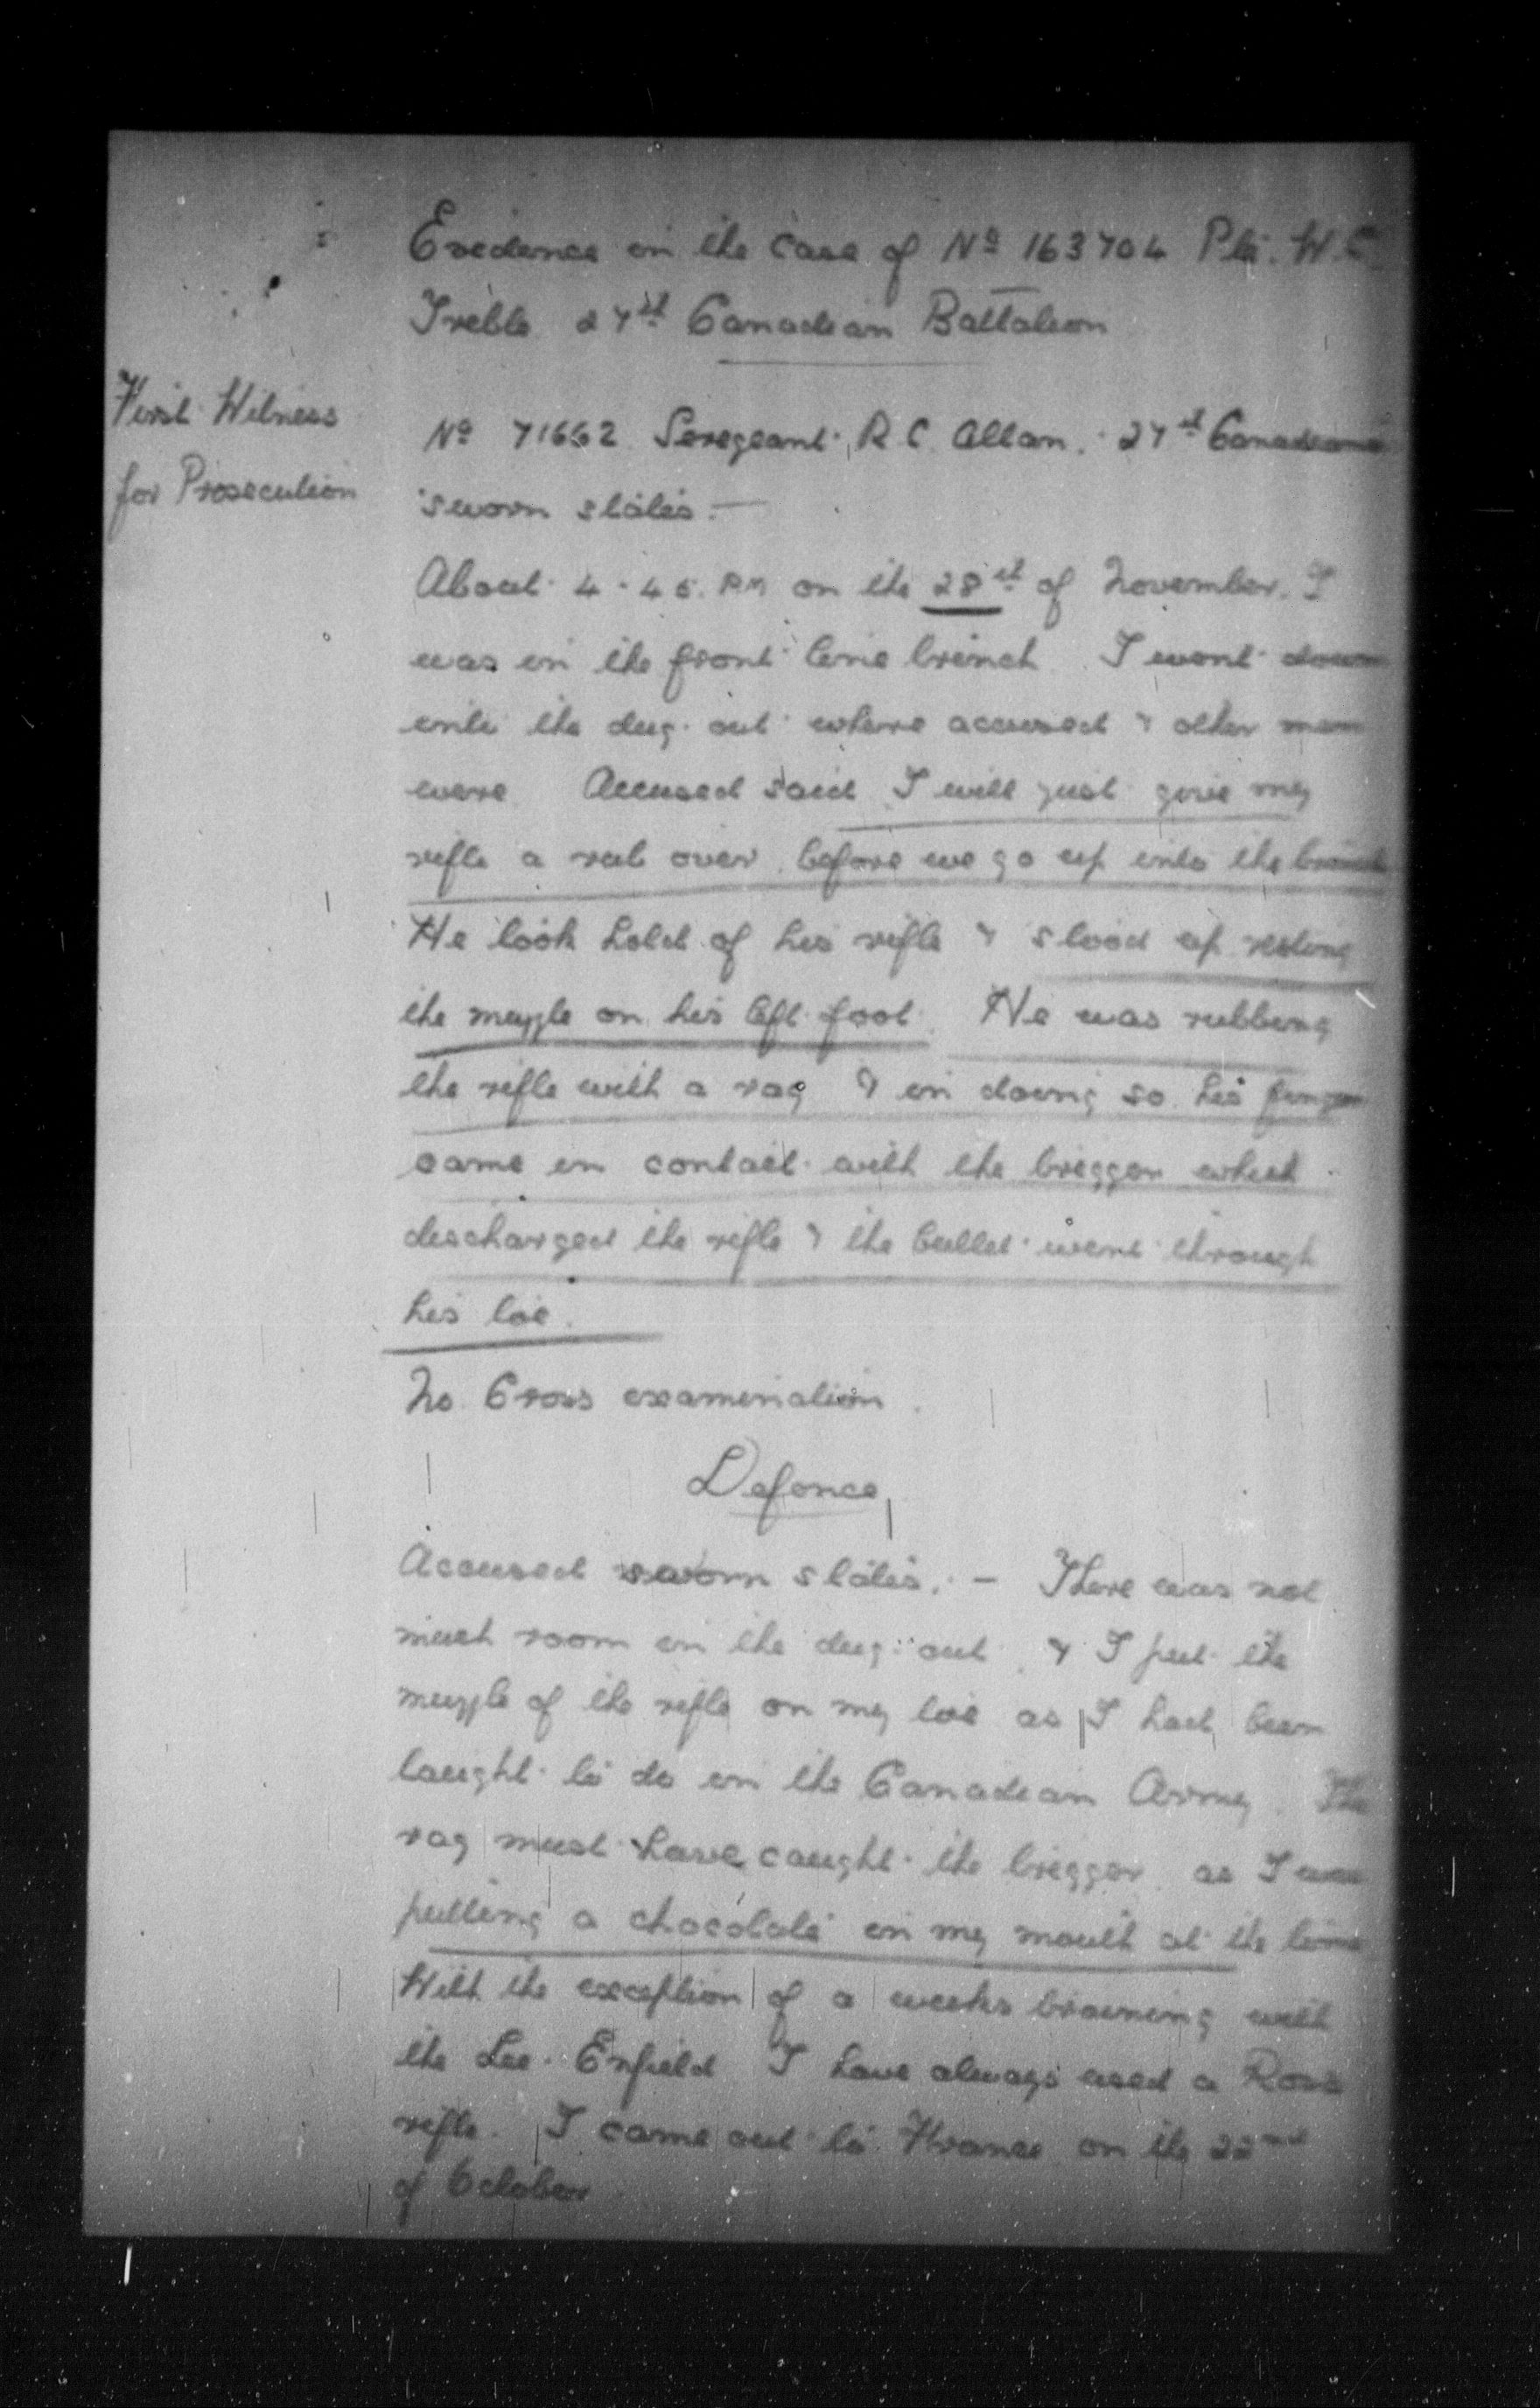 Evidence in the case of No 163704 Pte. W.C.
Treble 27th Canadian Battalion
First Witness
for Prosecution
No 71662 Seregeant R C Allan. 27th Canadians
sworn states: —
About 4.45. PM on the 28th of November. I
was in the front line trench. I went down
into the dug-out where accused & other men
were Accused said I will just give my
rifle a rub over, before we go up into the trench
He took hold of his rifle & stood up resting
the muzzle on his left foot. He was rubbing
the rifle with a rag & in doing so his finger
came in contact with the trigger which
discharged the rifle & the bullet went through
his toe.
No Cross examination.
Defence
Accused sworn states. — There was not
much room in the dug-out, & I put the
muzzle of the rifle on my toe as I had been
taught to do in the Canadian Army. The
rag must have caught the trigger as I was
putting a chocolate in my mouth at the time
With the exception of a weeks training with
the Lee-Enfield I have always used a Ross
rifle. I came out to France on the 22nd
of October